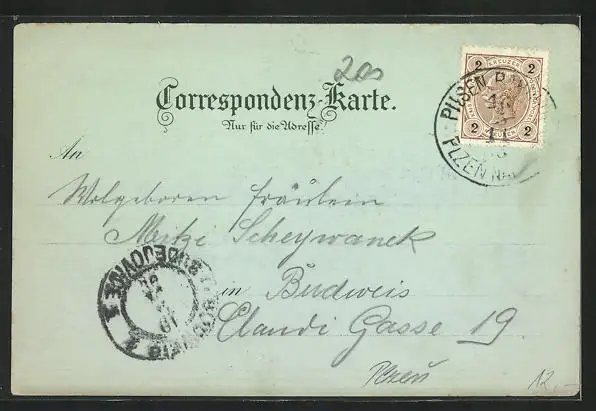 200
Correspondenz-Karte.
Nur für die Adresse.
2 KREUZER 2
2 2
PILSEN
PLZEŇ
11
An
Wolgeboren Fräulein
Mitzi Scheywanek
in Budweis
Claudi Gasse 19.
BUDĚJOVICE
BUDWEIS
12,-